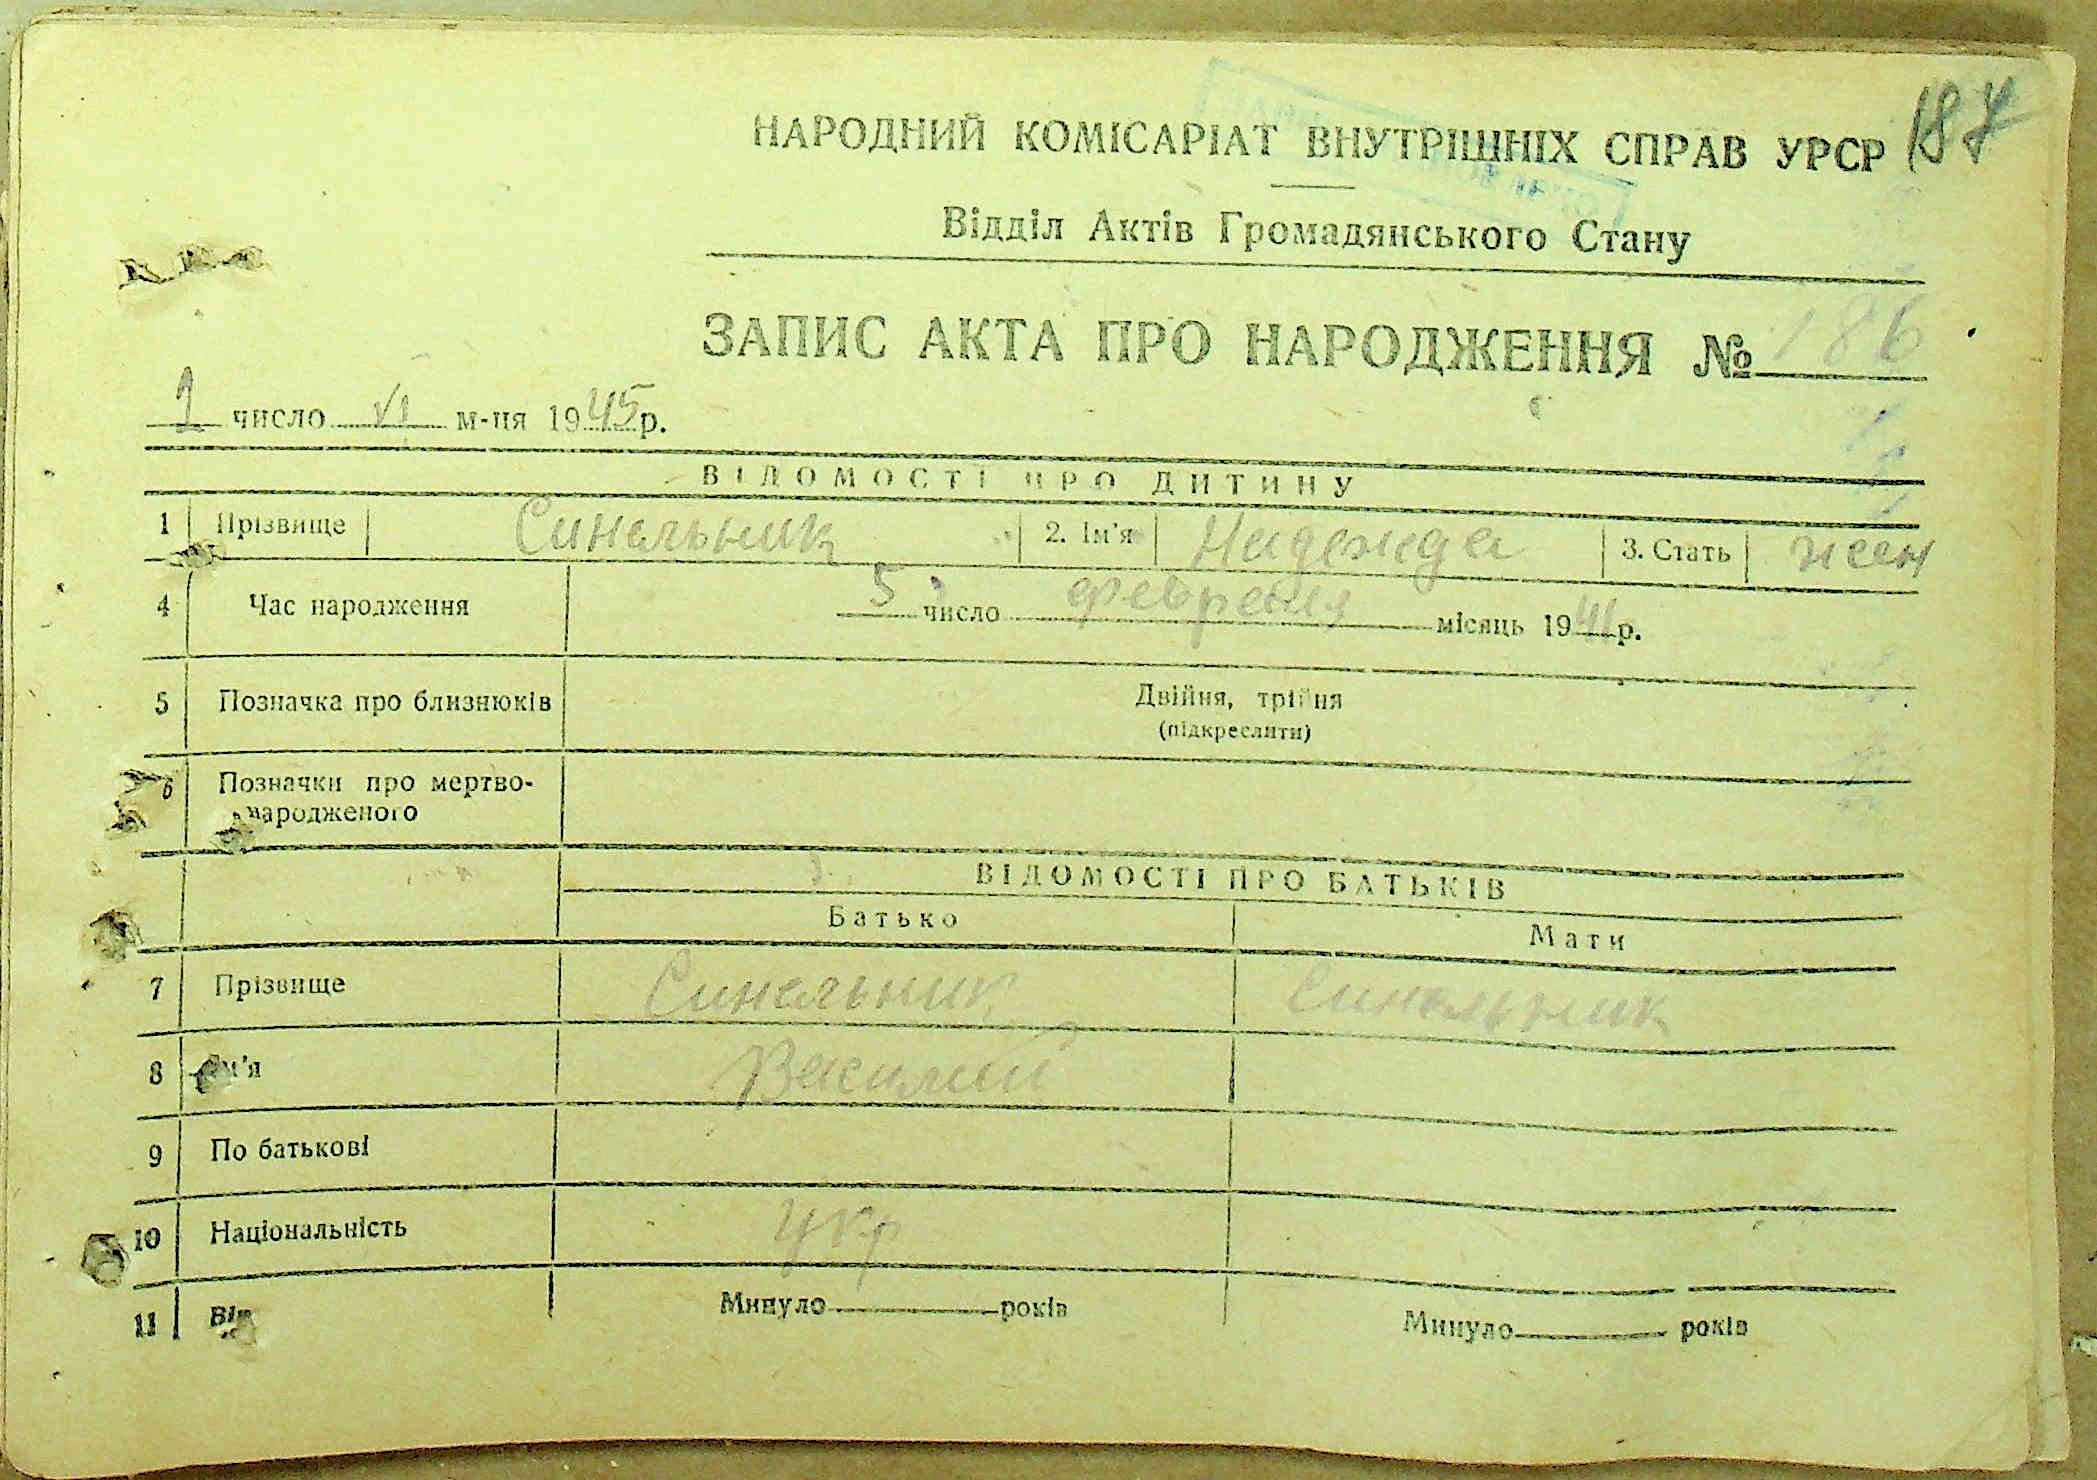 187
НАРОДНИЙ КОМІСАРІАТ ВНУТРІШНІХ СПРАВ УРСР
Відділ Актів Громадянського Стану
ЗАПИС АКТА ПРО НАРОДЖЕННЯ № 186
1 число VI м-ця 1945 р.
ВІДОМОСТІ ПРО ДИТИНУ
1 Прізвище Синельник 2. Ім'я Надежда 3. Стать жен
4 Час народження 5 число февраля місяць 1941 р.
5 Позначка про близнюків Двійня, трійня
(підкреслити)
6 Позначки про мертво-
народженого
ВІДОМОСТІ ПРО БАТЬКІВ
Батько Мати
7 Прізвище Синельник Синельник
8 Ім'я Василий
9 По батькові
10 Національність укр
11 Вік Минуло років Минуло років